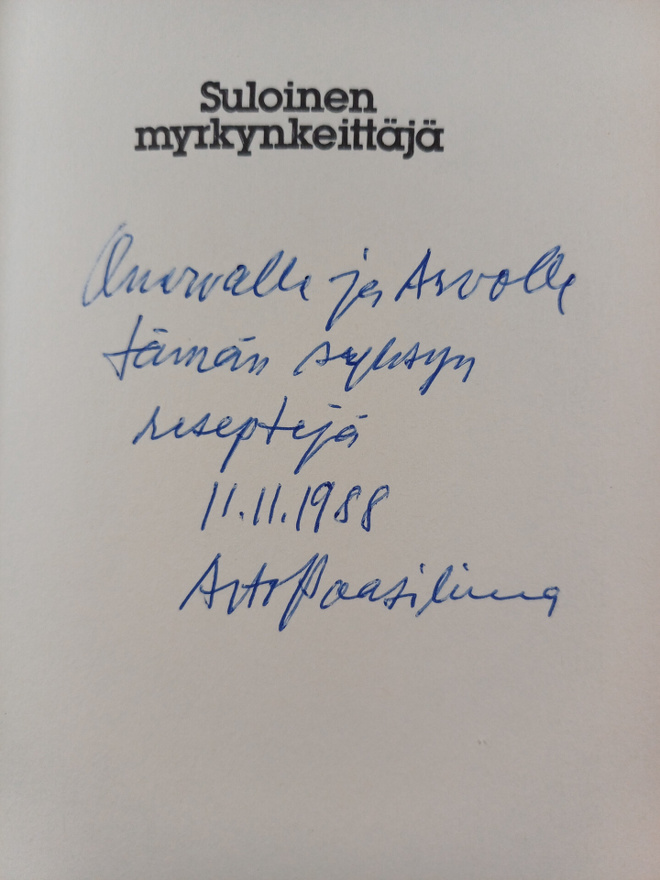 Suloinen
myrkynkeittäjä
Onervalle ja Arvolle
tämän syksyn
reseptejä
11.11.1988
Arto Paasilinna